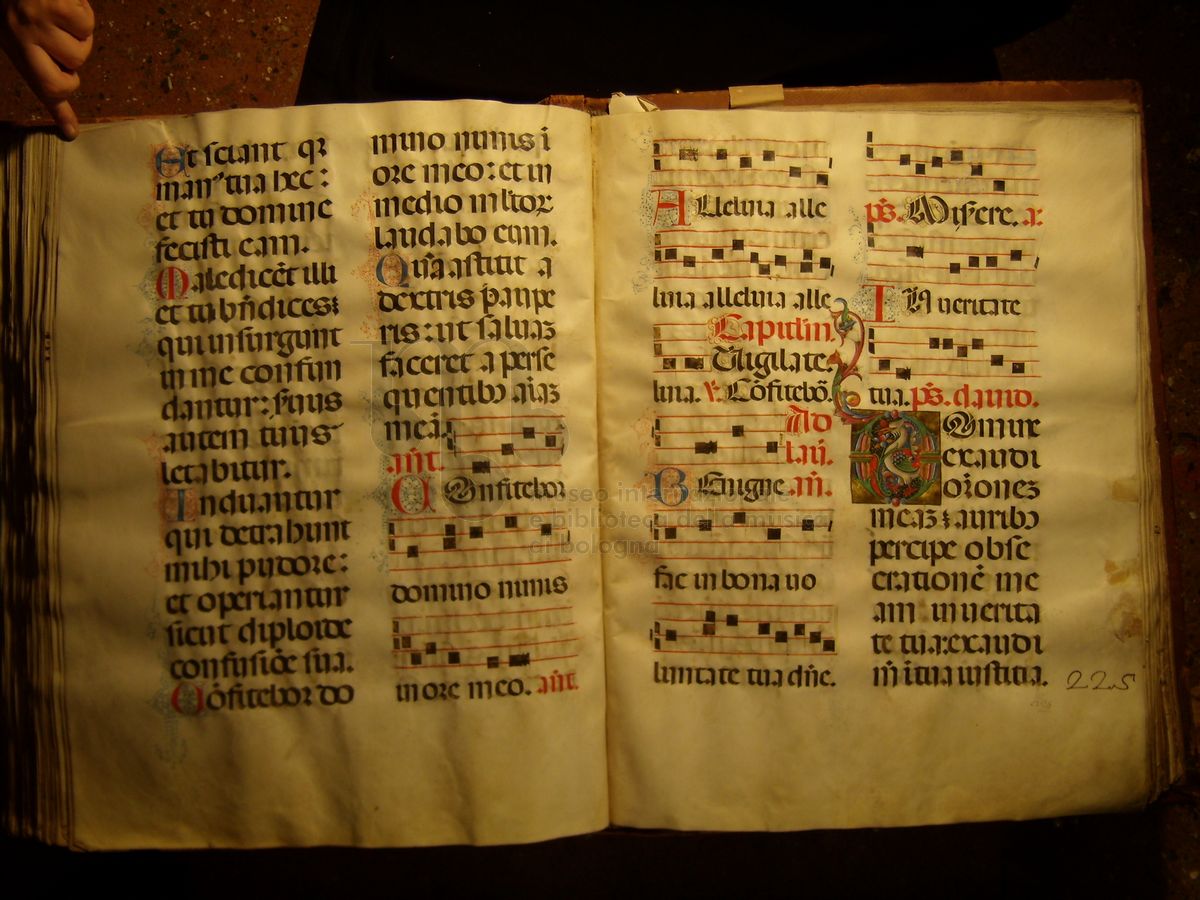 Et sciant qꝛ
man᷒ tua hec :
et tu domine
fecisti eam.
Maledicēt illi
et tu bn̄dices:
qui insurgunt
in me confun
dantur: seruus
autem tuus
letabitur.
Induantur
qui detrahunt
mihi pudore:
et operiantur
sicut diploide
confusiōe sua.
Cōfitebor do
mino nimis i
ore meo: et in
medio mltoꝝ
laudabo eum.
Quia astitit a
dextris paupe
ris: ut saluaꝫ
faceret a perse
quentibꝰ aīaꝫ
meā.
an̄t.
Confitebor
domino nimis
in ore meo. an̄t.
Alleluia alle
luia alleluia alle
Capitlm.
Uigilate.
luia. ℣. Cōfitebō.
Ad
lau.
Benigne. an̄.
fac in bona uo
luntate tua dn̄e.
ps. Misere. a.
In ueritate
tua. ps. dauid.
Domine
exaudi
oꝛōneꝫ
meaꝫ: auribꝰ
percipe obse
crationē me
am in uerita
te tua: exaudi
m̄ i tua iustitia.
225
museo internazionale
e biblioteca della musica
di bologna